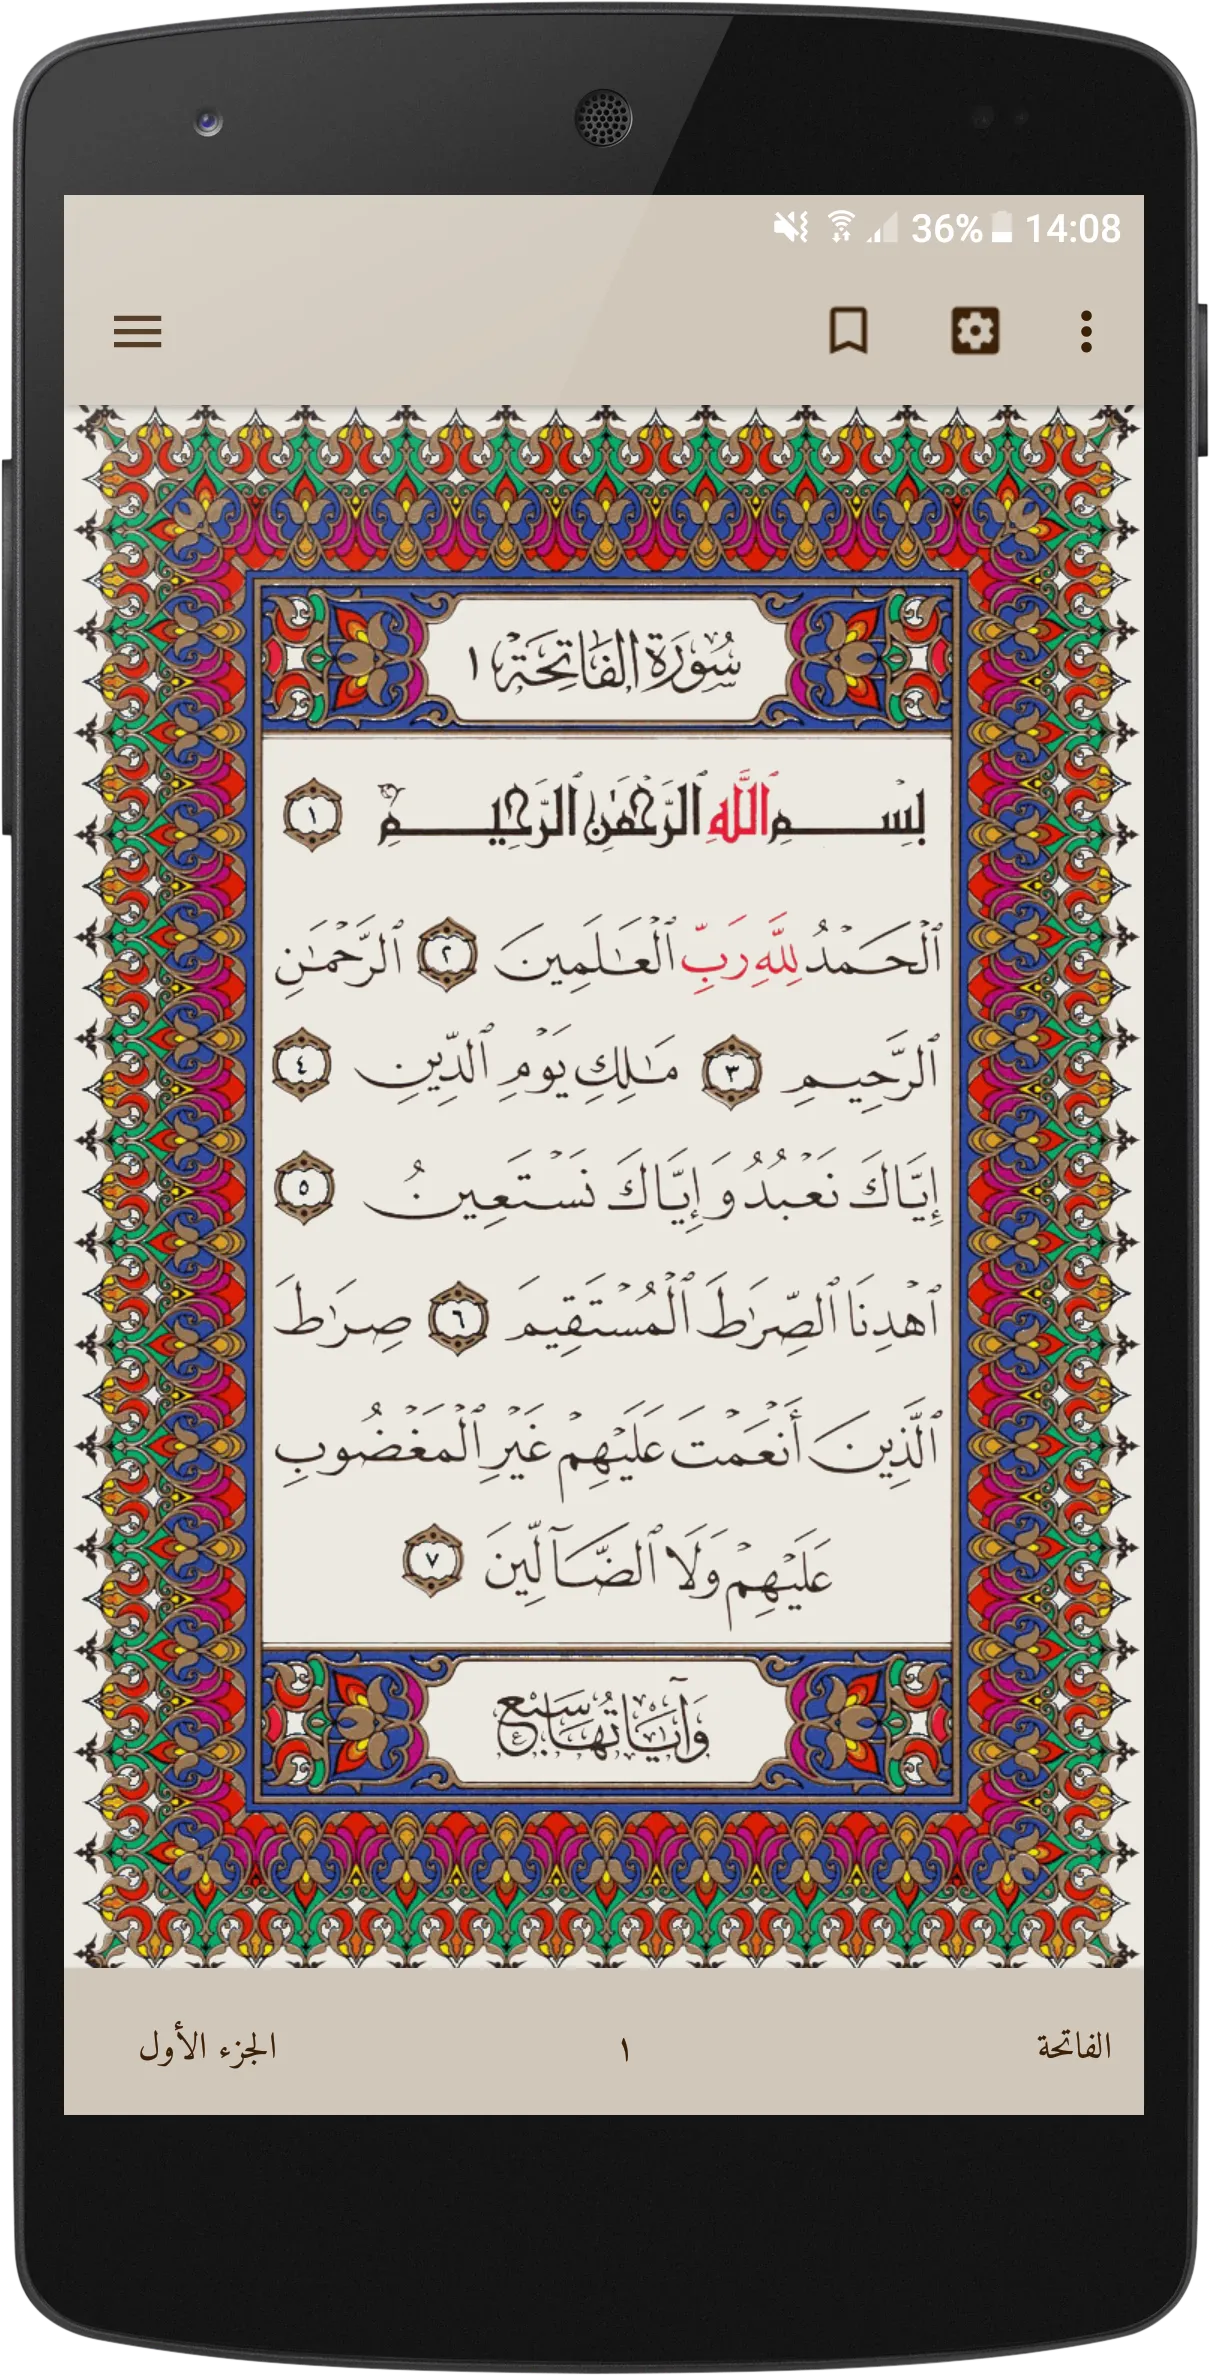 36% 14:08
سُورَة الفَاتِحَة ١
بِسْمِ ٱللَّهِ ٱلرَّحْمَٰنِ ٱلرَّحِيمِ ١
ٱلْحَمْدُ لِلَّهِ رَبِّ ٱلْعَٰلَمِينَ ٢ ٱلرَّحْمَٰنِ
ٱلرَّحِيمِ ٣ مَٰلِكِ يَوْمِ ٱلدِّينِ ٤
إِيَّاكَ نَعْبُدُ وَإِيَّاكَ نَسْتَعِينُ ٥
ٱهْدِنَا ٱلصِّرَٰطَ ٱلْمُسْتَقِيمَ ٦ صِرَٰطَ
ٱلَّذِينَ أَنْعَمْتَ عَلَيْهِمْ غَيْرِ ٱلْمَغْضُوبِ
عَلَيْهِمْ وَلَا ٱلضَّآلِّينَ ٧
وَآيَاتُهَا سَبْع
الفاتحة ١ الجزء الأول